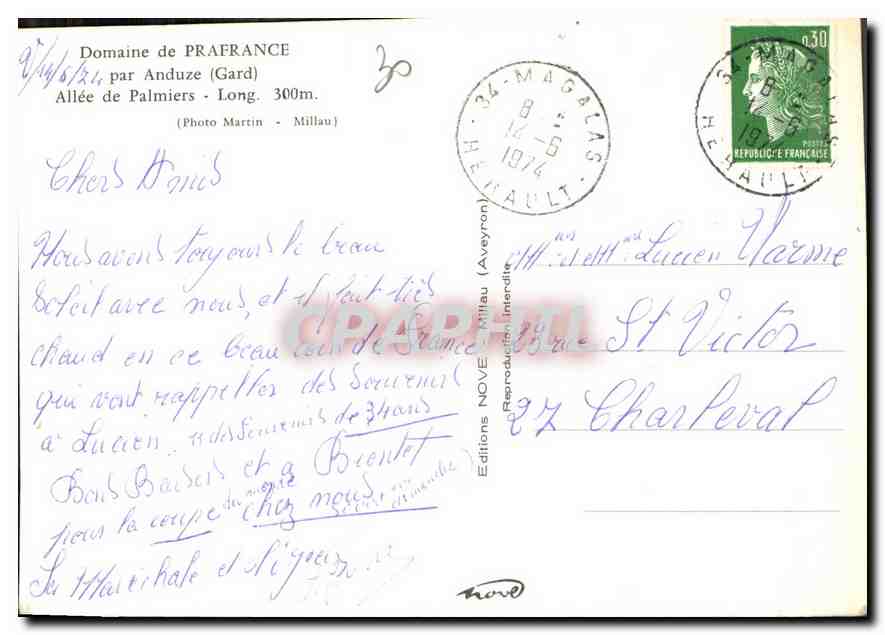 Domaine de PRAFRANCE
par Anduze (Gard)
Allée de Palmiers - Long. 300m.
(Photo Martin - Millau)
30
Chers Amis
Nous avons toujours le beau
Soleil avec nous, et il fait très
chaud en ce beau coin de France
qui vont rappeller des Souvenirs
à Lucien, des Souvenirs de 34 ans
Bons Baisers et a Bientot
pour la coupe du monde chez nous
dimanche
La Maréchale et
34 - MAGALAS
8
14 - 6
1974
HERAULT
0,30
POSTES
REPUBLIQUE FRANÇAISE
34 - MAGALAS
8
14 - 6
1974
HERAULT
Lucien Varmé
St Victor
27 Charleval
Editions NOVE - Millau (Aveyron)
Reproduction interdite
nove
CPAPHIL